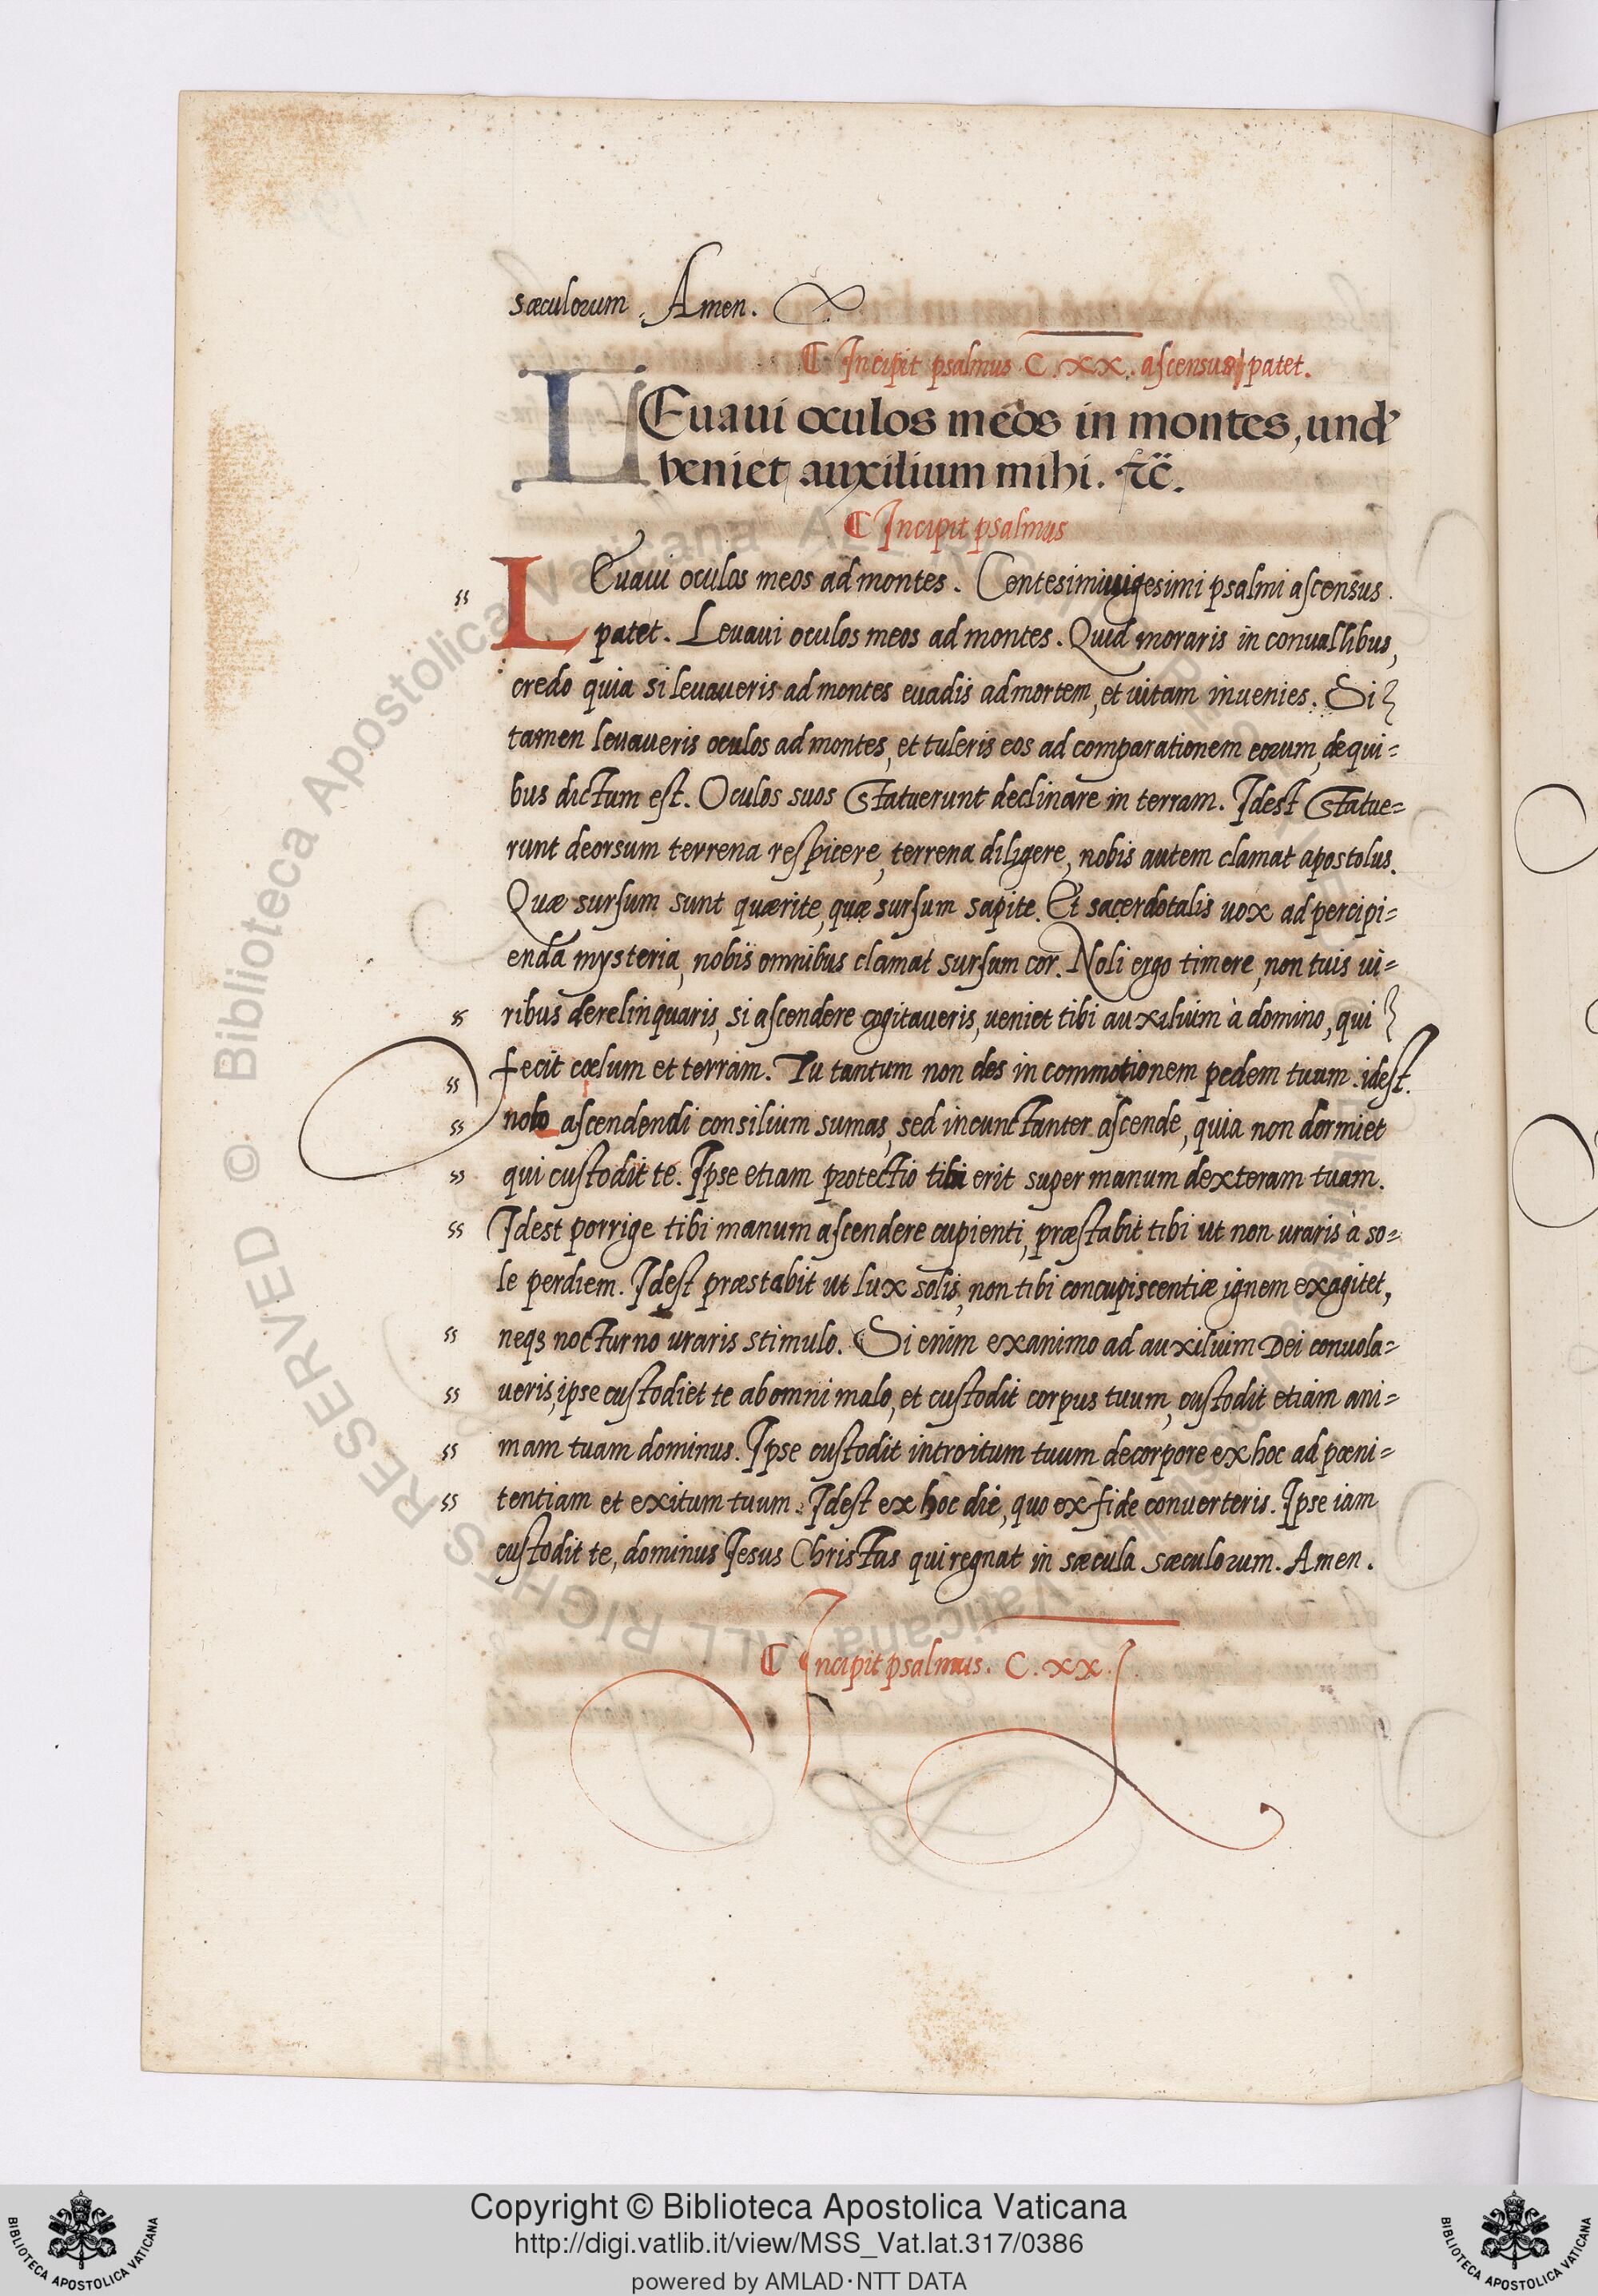 sæculorum. Amen.
¶ Incipit psalmus C.XX. ascensus patet.
LEuaui oculos meos in montes, unde
veniet auxilium mihi. &c.
¶ Incipit psalmus
LEuaui oculos meos ad montes. Centesimi uigesimi psalmi ascensus.
patet. Leuaui oculos meos ad montes. Quid moraris in conuallibus,
credo quia si leuaueris ad montes euadis ad mortem, et uitam inuenies. Si
tamen leuaueris oculos ad montes, et tuleris eos ad comparationem eorum, de qui=
bus dictum est. Oculos suos Statuerunt declinare in terram. Idest Statue=
runt deorsum terrena respicere, terrena diligere, nobis autem clamat apostolus.
Quæ sursum sunt quærite, quæ sursum sapite. Et sacerdotalis uox ad percipi=
enda mysteria, nobis omnibus clamat sursum cor. Noli ergo timere, non tuis ui=
ribus derelinquaris, si ascendere cogitaueris, ueniet tibi auxilium à domino, qui
fecit cœlum et terram. Tu tantum non des in commotionem pedem tuum. idest.
nolo ascendendi consilium sumas, sed incunctanter ascende, quia non dormiet
qui custodit te. Ipse etiam protectio tibi erit super manum dexteram tuam.
Idest porrige tibi manum ascendere cupienti, præstabit tibi ut non uraris à so=
le perdiem. Idest præstabit ut lux solis, non tibi concupiscentiæ ignem exagitet,
neqs nocturno uraris stimulo. Si enim exanimo ad auxilium Dei conuola=
ueris, ipse custodiet te ab omni malo, et custodit corpus tuum, custodit etiam ani=
mam tuam dominus. Ipse custodit introitum tuum decorpore ex hoc ad pœni=
tentiam et exitum tuum. Idest ex hoc die, quo ex fide conuerteris. Ipse iam
custodit te, dominus Iesus Christus qui regnat in sæcula sæculorum. Amen.
¶ Incipit psalmus. C.XX.I.
© Biblioteca Apostolica Vaticana ALL RIGHTS RESERVED
Copyright © Biblioteca Apostolica Vaticana
http://digi.vatlib.it/view/MSS_Vat.lat.317/0386
powered by AMLAD·NTT DATA
BIBLIOTECA APOSTOLICA VATICANA
BIBLIOTECA APOSTOLICA VATICANA